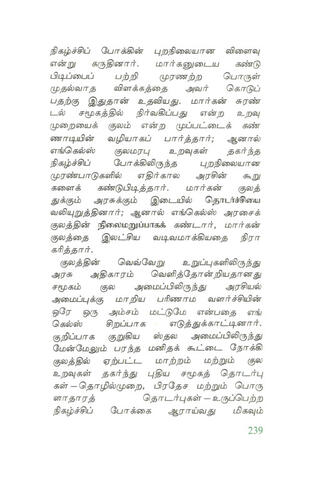 நிகழ்ச்சிப் போக்கின் புறநிலையான விளைவு
என்று கருதினார். மார்கனுடைய கண்டு
பிடிப்பைப் பற்றி முரணற்ற பொருள்
முதல்வாத விளக்கத்தை அவர் கொடுப்
பதற்கு இதுதான் உதவியது. மார்கன் சுரண்
டல் சமூகத்தில் நிர்வகிப்பது என்ற உறவு
முறையைக் குலம் என்ற முப்பட்டைக் கண்
ணாடியின் வழியாகப் பார்த்தார்; ஆனால்
எங்கெல்ஸ் குலமரபு உறவுகள் தகர்ந்த
நிகழ்ச்சிப் போக்கிலிருந்த புறநிலையான
முரண்பாடுகளில் எதிர்கால அரசின் கூறு
களைக் கண்டுபிடித்தார். மார்கன் குலத்
துக்கும் அரசுக்கும் இடையில் தொடர்ச்சியை
வலியுறுத்தினார்; ஆனால் எங்கெல்ஸ் அரசைக்
குலத்தின் நிலைமறுப்பாகக் கண்டார், மார்கன்
குலத்தை இலட்சிய வடிவமாக்கியதை நிரா
கரித்தார்.
குலத்தின் வெவ்வேறு உறுப்புகளிலிருந்து
அரசு அதிகாரம் வெளித்தோன்றியதானது
சமூகம் குல அமைப்பிலிருந்து அரசியல்
அமைப்புக்கு மாறிய பரிணாம வளர்ச்சியின்
ஒரே ஒரு அம்சம் மட்டுமே என்பதை எங்
கெல்ஸ் சிறப்பாக எடுத்துக்காட்டினார்.
குறிப்பாக குறுகிய ஸ்தல அமைப்பிலிருந்து
மேன்மேலும் பரந்த மனிதக் கூட்டை நோக்கி
குலத்தில் ஏற்பட்ட மாற்றம் மற்றும் குல
உறவுகள் தகர்ந்து புதிய சமூகத் தொடர்பு
கள் – தொழில்முறை, பிரதேச மற்றும் பொரு
ளாதாரத் தொடர்புகள் – உருப்பெற்ற
நிகழ்ச்சிப் போக்கை ஆராய்வது மிகவும்
239